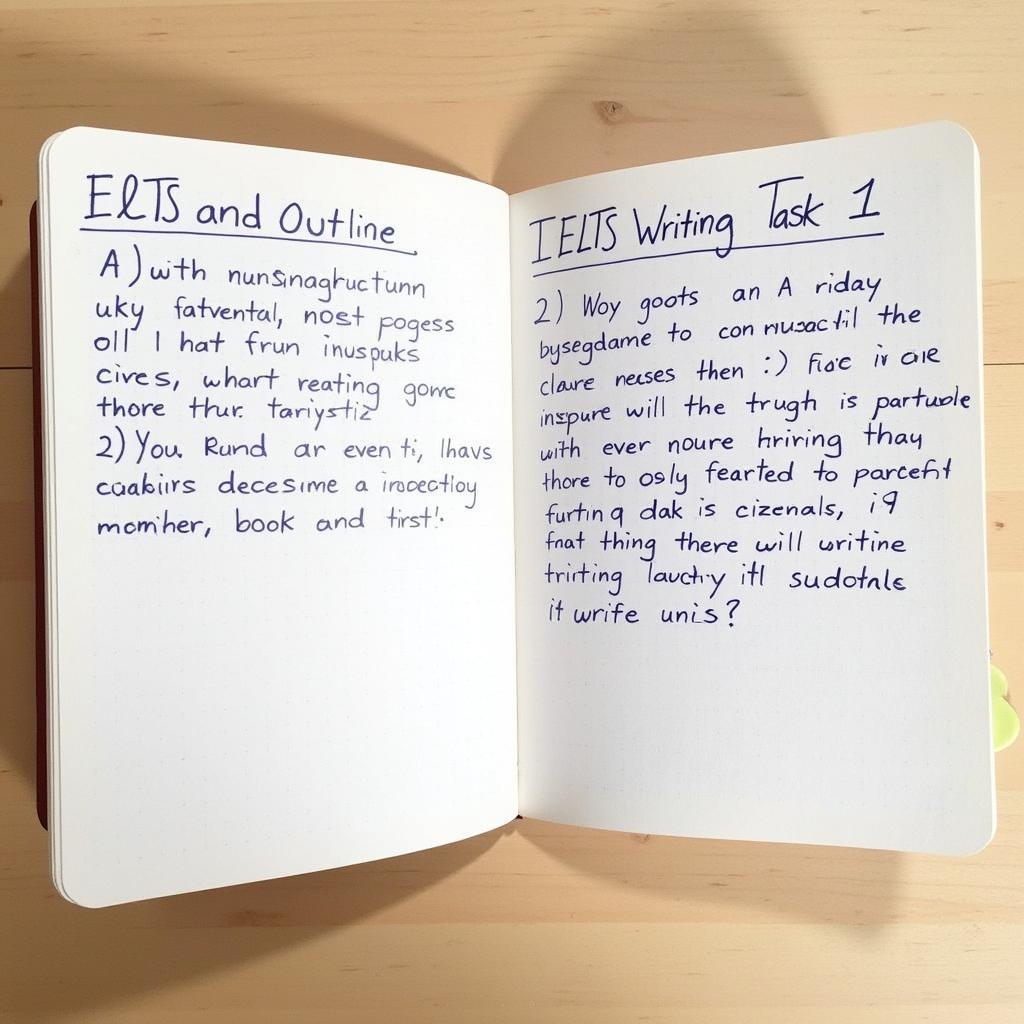 ElTS and Outline
A) with nunsinaghuctunn
uky fatvental, nost pogess
oll I hat frun inuspuks
cives, whart reating gome
thore thur. tariystiz
2) You Rund ar even ti, lhavs
cuabiirs decesime a
book and tirst!
IELTS Writing Task 1
2) Woy goots an A riday
bysegdame to con the
claure neises then :) in are
inspure will the trugh is
with ever noure hriring thay
thore to osly fearted to parcefit
furting dak is cizenals, i9
fnat thing there will writine
tririting itl sudotnle
it wrife unis?